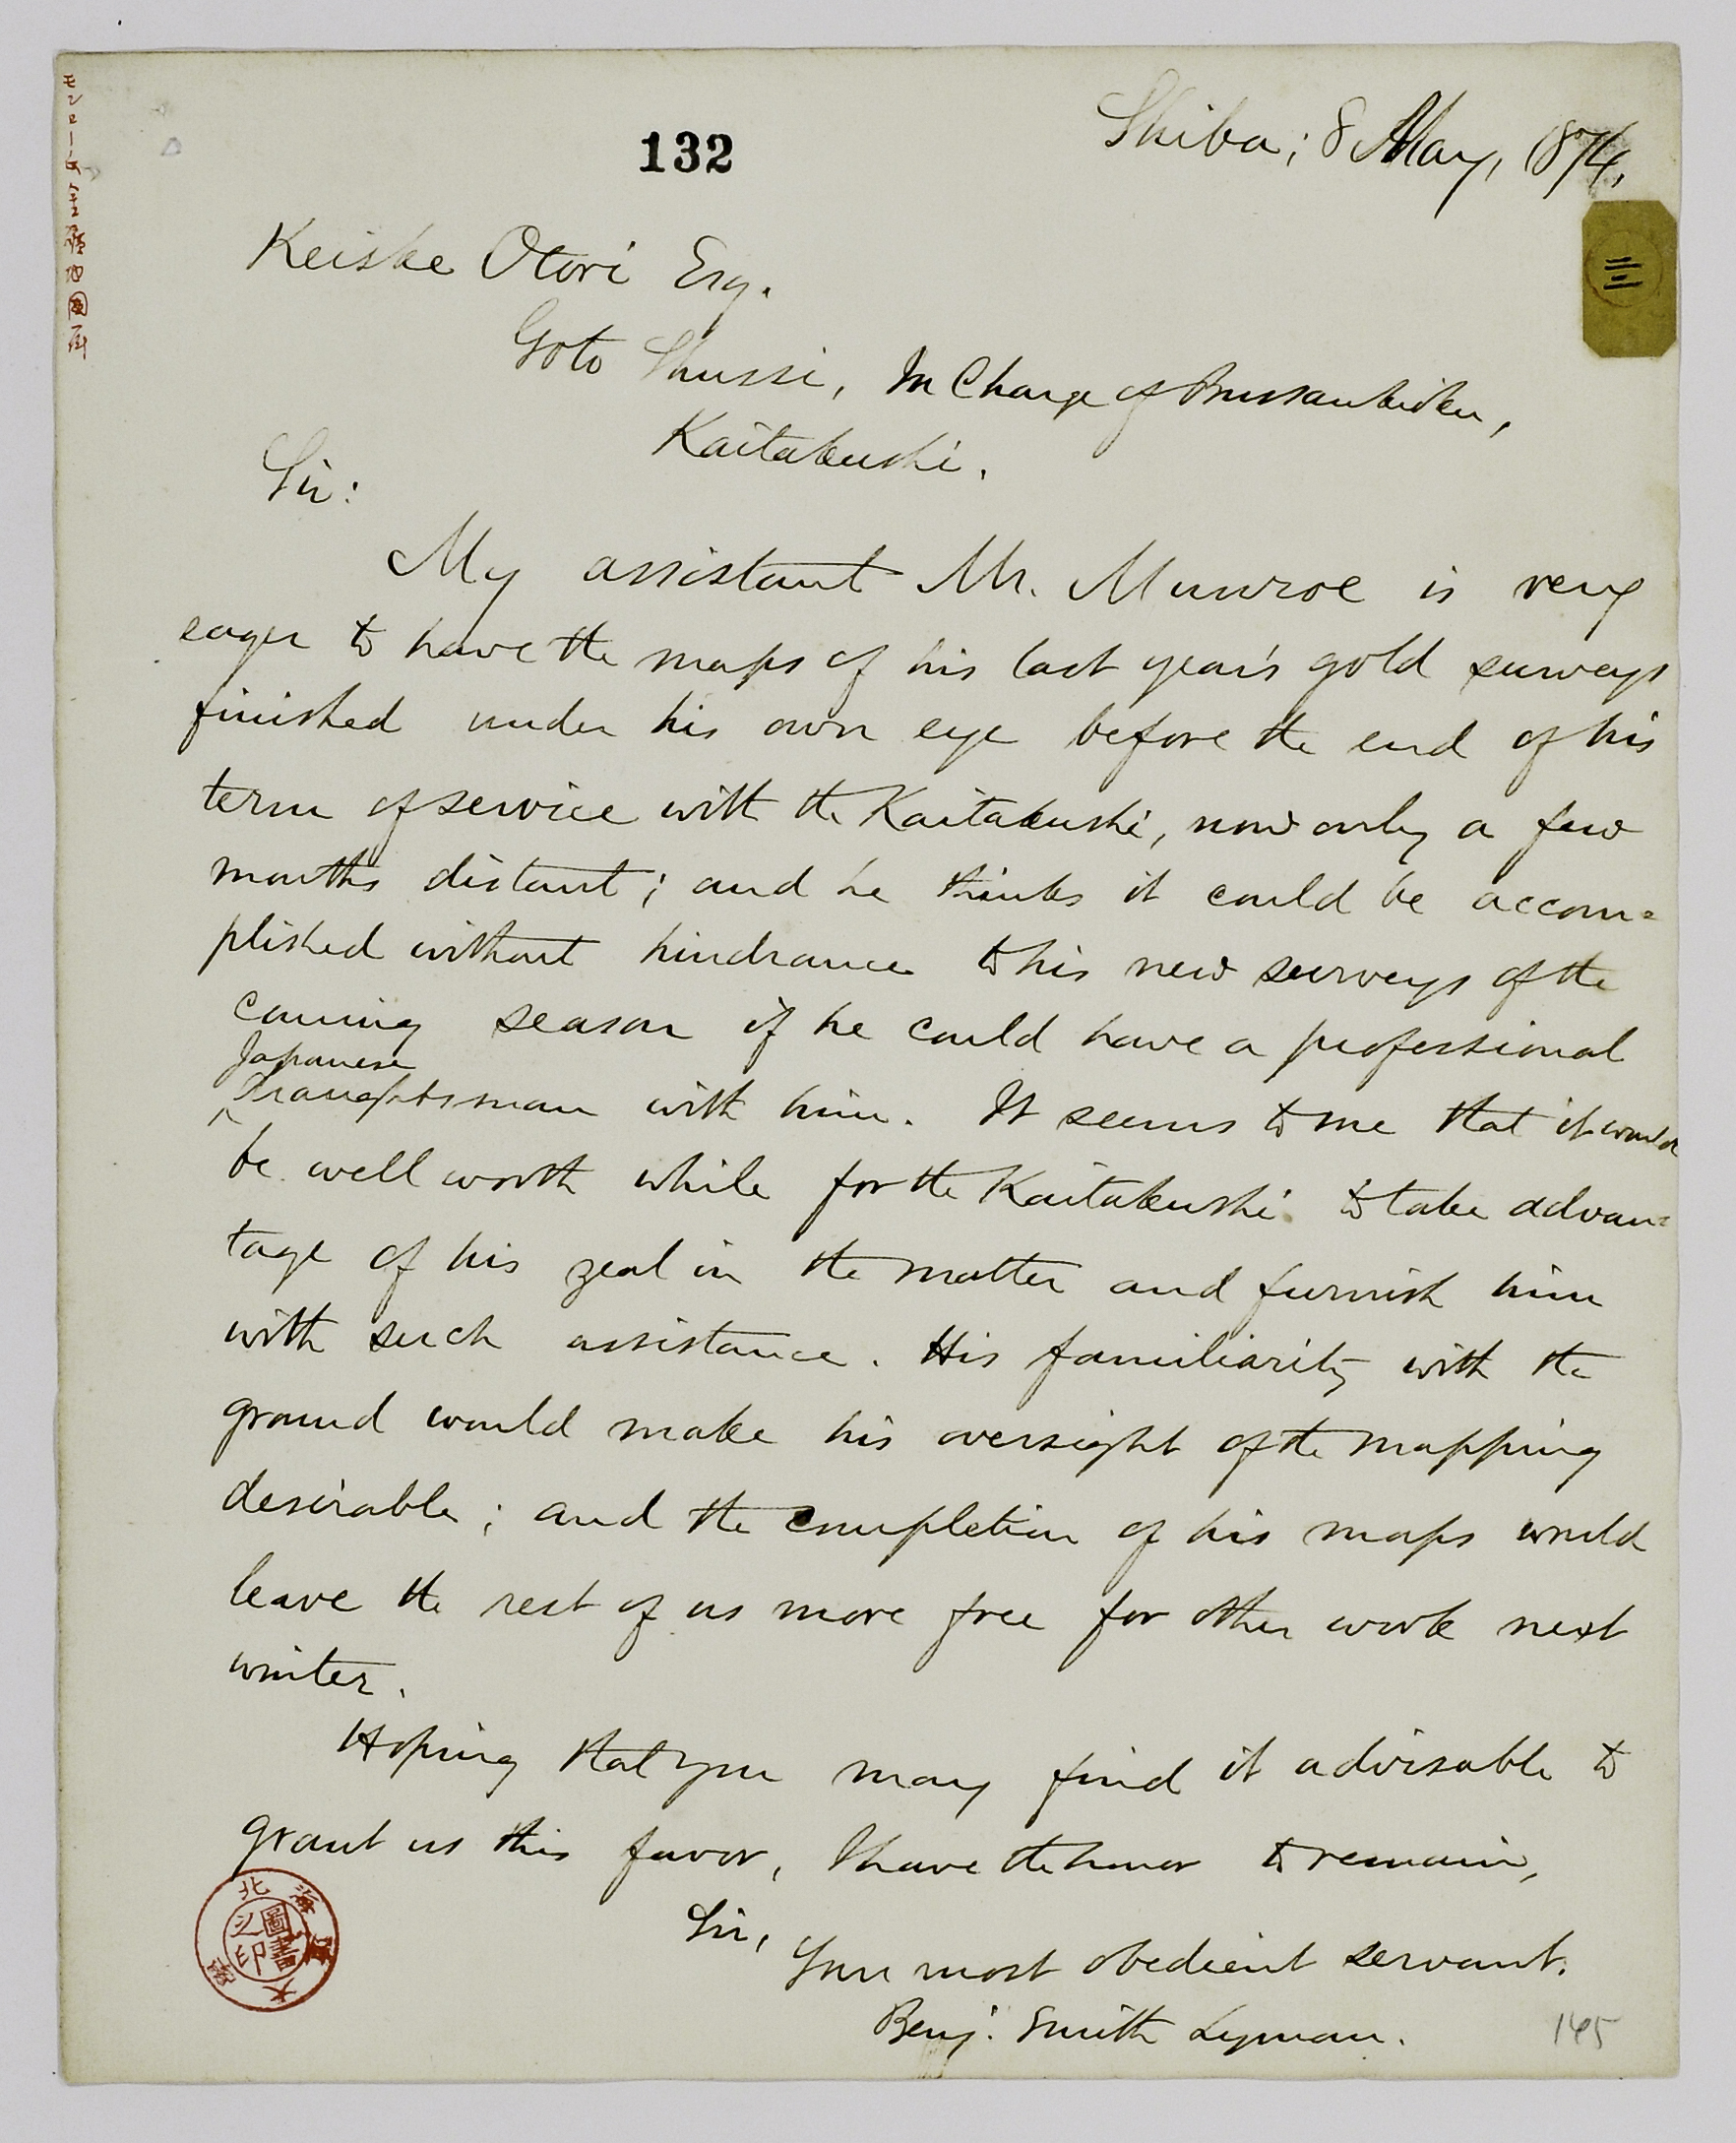 132
Shiba; 8 May, 1874,
Keiske Otori Esq.
Goto Shussi, In Charge of Bussankiku,
Kaitakushi.
Sir:
My assistant Mr. Munroe is very
eager to have the maps of his last year's gold surveys
finished under his own eye before the end of his
term of service with the Kaitakushi, now only a few
months distant; and he thinks it could be accom=
plished without hindrance to his new surveys of the
coming season if he could have a professional
Japanese
draughtsman with him. It seems to me that it would
be well worth while for the Kaitakushi to take advan=
tage of his zeal in the matter and furnish him
with such assistance. His familiarity with the
ground would make his oversight of the mapping
desirable; and the completion of his maps would
leave the rest of us more free for other work next
winter.
Hoping that you may find it advisable to
grant us this favor, I have the honor to remain,
Sir,
Your most obedient servant.
Benj. Smith Lyman.
145
三
北海道大學
圖書之印